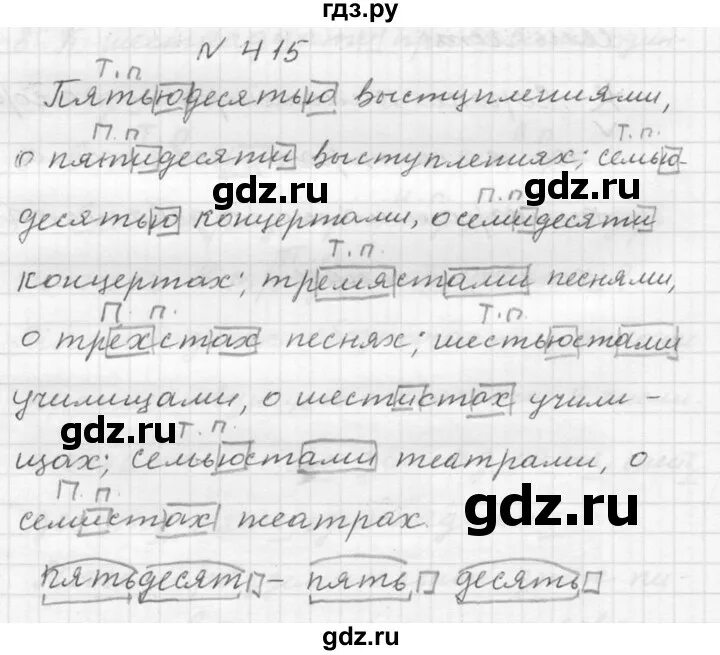 гдз.ру
N 415
Т. п
Пятьюдесятью выступлениями,
П. п Т. п.
о пятидесяти выступлениях; семью-
gdz.ru gdz.ru
П. п.
десятью концертами, о семидесяти
Т. п.
концертах; тремястами песнями,
П. п. Т. п.
о трёхстах песнях; шестьюстами
училищами, о шестистах учили-
gdz.ru
Т. п.
щах; семьюстами театрами, о
П. п.
семистах театрах.
gdz.ru
пятьдесят - пять десять
gdz.ru